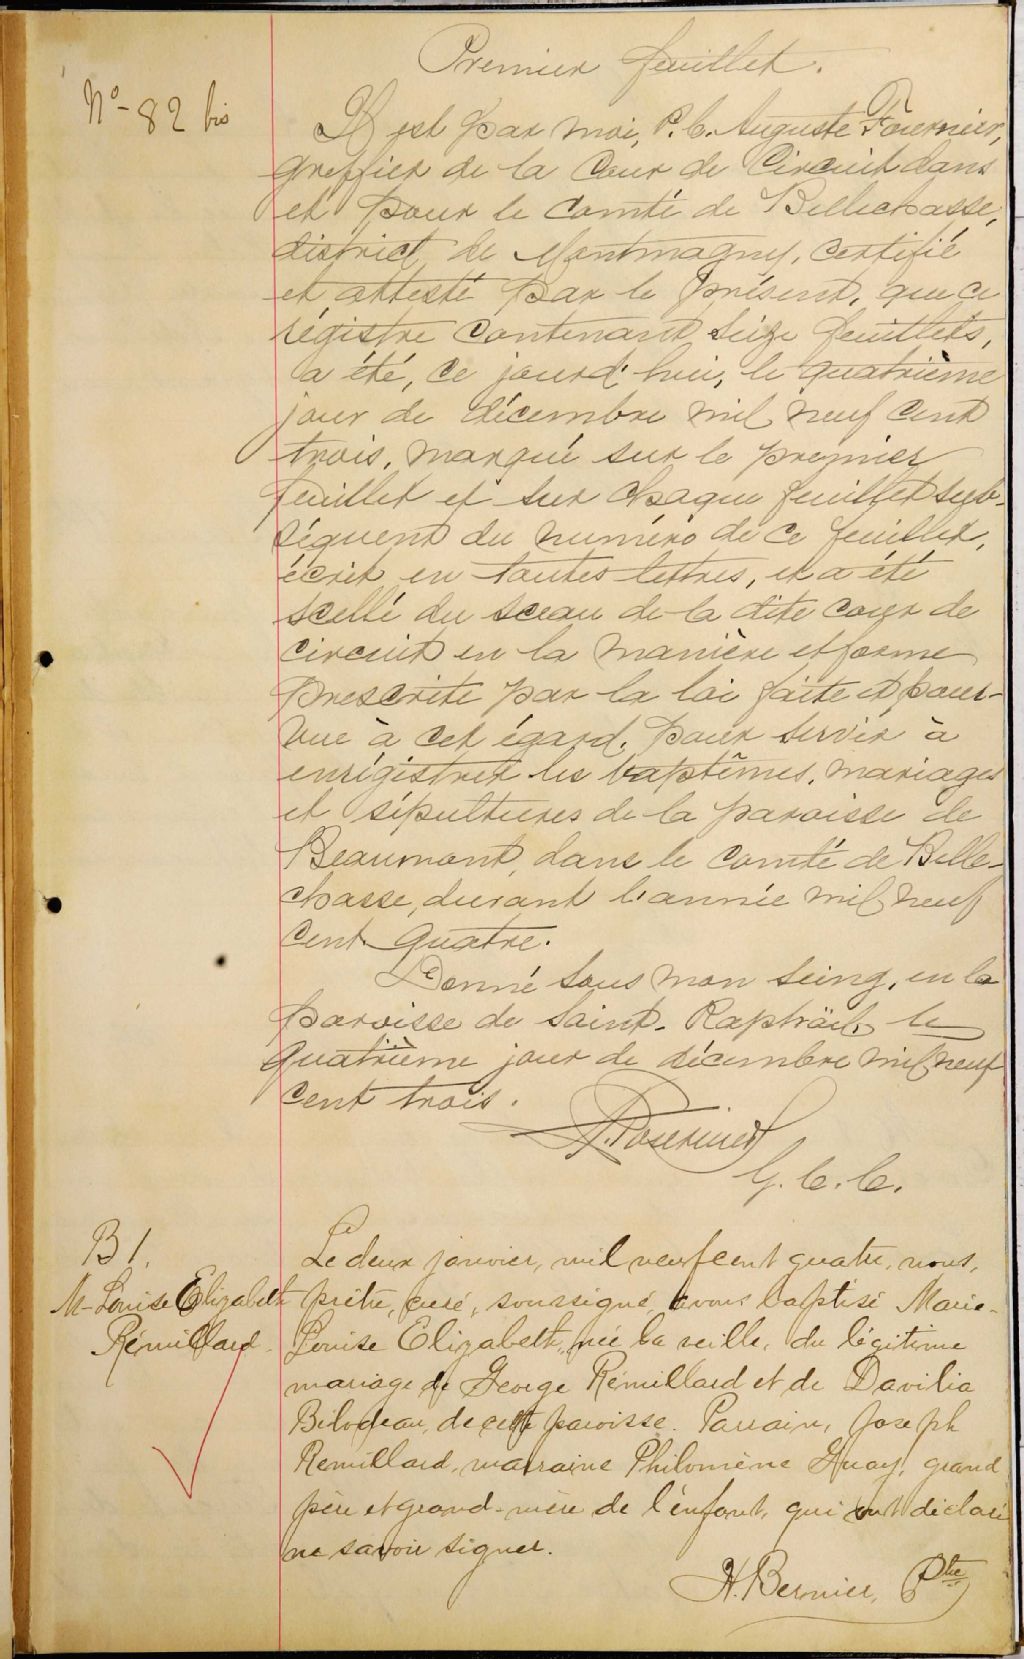 Premier feuillet.
No- 82 bis
Il est par moi, P. C. Auguste Fournier,
greffier de la Cour de Circuit dans
et pour le Comté de Bellechasse,
district de Montmagny, certifié
et attesté par le présent, que ce
régistre contenant seize feuillets,
a été, ce jourd'hui, le quatrième
jour de décembre mil neuf cent
trois, marqué sur le premier
feuillet et sur chaque feuillet sub-
séquent du numéro de ce feuillet,
écrit en toutes lettres, et a été
scellé du sceau de la dite cour de
circuit en la manière et forme
prescrite par la loi faite et pour-
vue à cet égard, pour servir à
enrégistrer les baptêmes, mariages
et sépultures de la paroisse de
Beaumont, dans le comté de Belle-
chasse, durant l'année mil neuf
cent quatre.
Donné sous mon seing, en la
paroisse de Saint-Raphäel, le
quatrième jour de décembre mil neuf
cent trois.
A. Fournier
G. C. C.
B 1.
M-Louise Elizabeth
Rémillard.
Le deux janvier, mil neuf cent quatre, nous,
prêtre, curé, soussigné, avons baptisé Marie-
Louise Elizabeth, née la veille, du légitime
mariage de George Rémillard et de Davilia
Bilodeau, de cette paroisse. Parrain, Joseph
Remillard, marraine Philomène Guay, grand
père et grand-mère de l'enfant, qui ont déclaré
ne savoir signer.
H. Bernier, Ptre